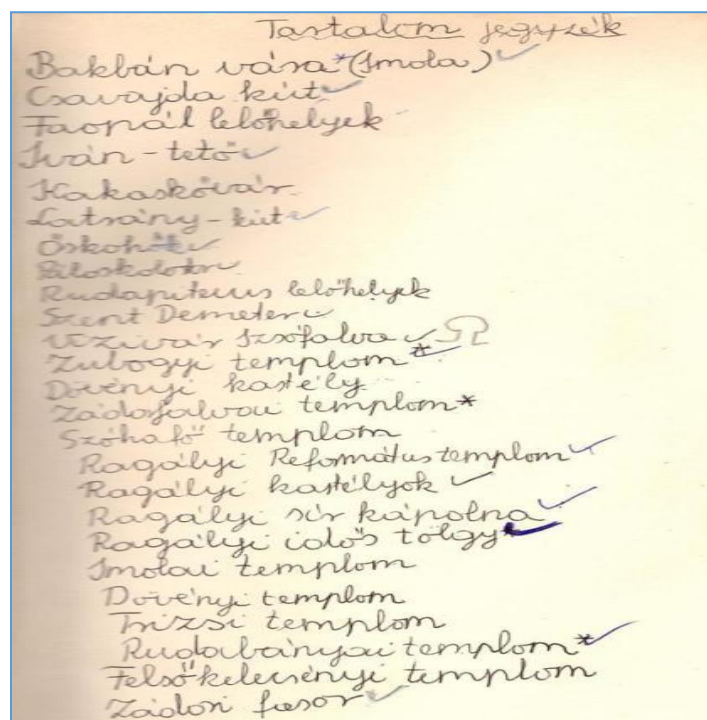 Tartalom jegyzék
Bakbán vára*(Imola) ✓
Csavajda kút ✓
lelőhelyek
Iván-tető ✓
Kakaskővár
Látrány-kút ✓
Őskohók ✓
Rudapitecus lelőhelyek
Szent Demeter ✓
Vízivár Izsófalva ✓
Zubogyi templom* ✓
Dövényi kastély
Zádorfalvai templom*
Szőhafő templom
Ragályi Református templom ✓
Ragályi kastélyok ✓
Ragályi sír kápolna ✓
Ragályi idős tölgy* ✓
Imolai templom
Dövényi templom
Trizsi templom
Rudabányai templom* ✓
Felsőkelecsényi templom
Zádori fasor ✓